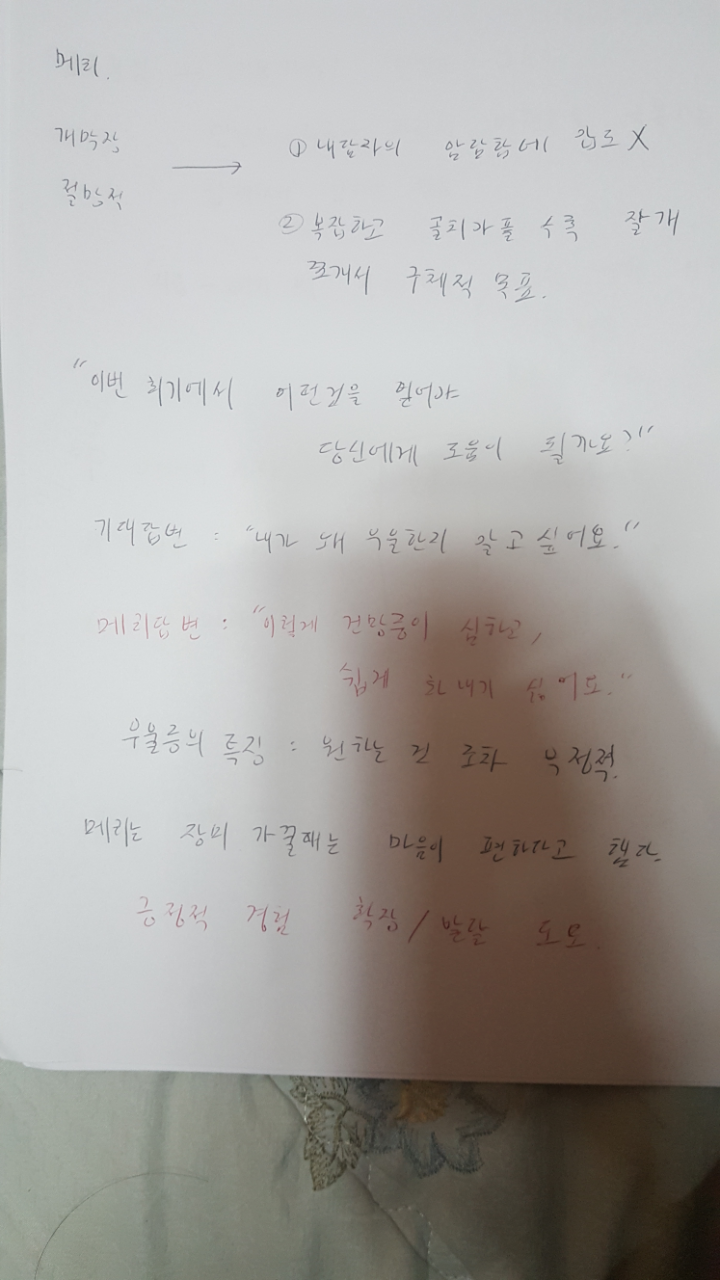 메리.
개막장
절망적
→ ① 내담자의 암담함에 압도 X
② 복잡하고 골치가플 수록 잘개
쪼개서 구체적 목표.
"이번 회기에서 어떤것을 얻어야
당신에게 도움이 될까요?"
기대답변 : "내가 왜 우울한지 알고 싶어요."
메리답변 : "이렇게 건망증이 심하고,
쉽게 화내기 싫어요."
우울증의 특징 : 원하는 건 조차 부정적.
메리는 장미 가꿀때는 마음이 편하다고 했다.
긍정적 경험 확장/발달 도모.